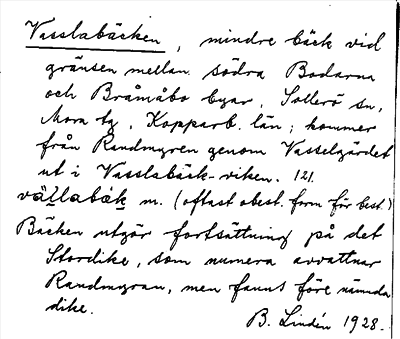 Vasslabäcken, mindre bäck vid
gränsen mellan södra Bodarna
och Bråmåbo byar, Sollerö sn,
Mora tg, Kopparb. län; kommer
från Randmyren genom Vasselgärdet
ut i Vasslabäck-viken. 121.
vällabäk m. (oftast obest. form för best.)
Bäcken utgör fortsättning på det
Stordike, som numera avvattnar
Randmyran, men fanns före nämnda
dike.
B. Lindén 1928.